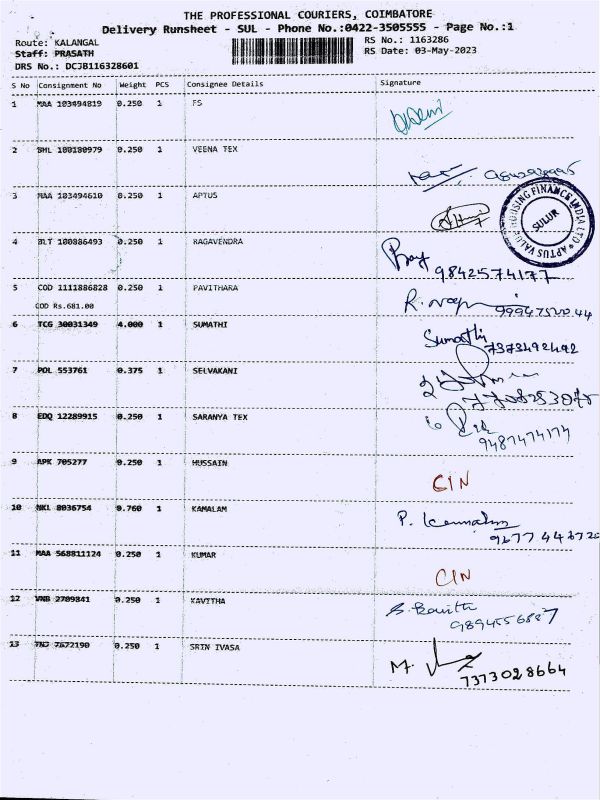 THE PROFESSIONAL COURIERS, COIMBATORE
Delivery Runsheet - SUL - Phone No.:0422-3505555 - Page No.:1
Route: KALANGAL
RS No.: 1163286
Staff: PRASATH
RS Date: 03-May-2023
DRS No.: DCJB116328601
S No Consignment No Weight PCS Consignee Details Signature
1 MAA 103494819 0.250 1 FS
2 BHL 100180979 0.250 1 VEENA TEX
3 MAA 103494610 0.250 1 APTUS
APTUS VALUE HOUSING FINANCE INDIA LTD
SULUR
4 BLT 100886493 0.250 1 RAGAVENDRA
9842574177
5 COD 1111886828 0.250 1 PAVITHARA
COD Rs.681.00
6 TCG 30031349 4.000 1 SUMATHI
Sumathi
7373492492
7 POL 553761 0.375 1 SELVAKANI
8 EDQ 12289915 0.250 1 SARANYA TEX
9487474174
9 APK 705277 0.250 1 HUSSAIN
CIN
10 NKL 8036754 0.760 1 KAMALAM
P.
11 MAA 568811124 0.250 1 KUMAR
CIN
12 VNB 2709841 0.250 1 KAVITHA
S. Kavitha
13 TNJ 7672190 0.250 1 SRIN IVASA
M.
7373028664